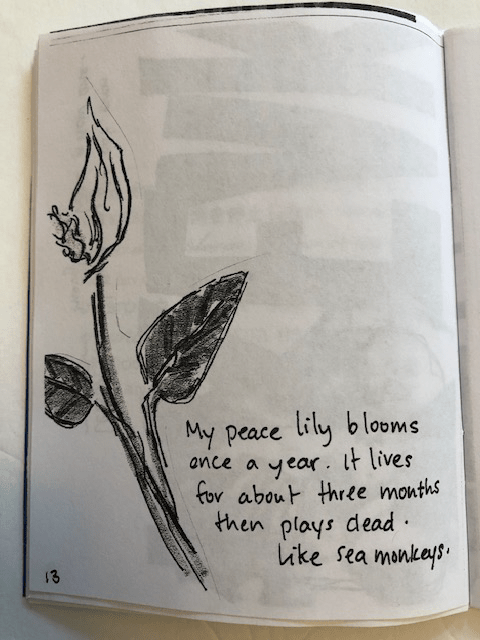 My peace lily blooms
once a year. It lives
for about three months
then plays dead.
Like sea monkeys.
13